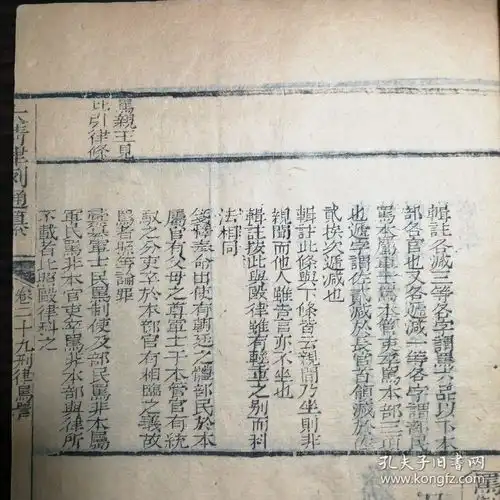 罵親王見
比引律條
輯註各減三等各字謂罵六品以下本
部名官也又各遞減一等各字謂部民
罵本屬軍士罵本管吏卒罵本部三項
也遞字謂佐貳減於長官首領減於佐
貳挨次遞減也
輯註此條與下條皆云親聞乃坐則非
親聞而他人雖首言亦不坐也
輯註按此與毆律雖有輕重之別而科
法相同
奉命出使有朝廷之體部民於本
屬官有父母之尊軍士于本管官有統
馭之分吏卒於本部官有相臨之義故
罵者 等論罪
軍士民罵制使及部民罵非本屬
軍民罵非本官吏卒罵非本部與律所
不載者比毆律科之
大清律例通纂 卷二十九刑律罵詈
孔夫子旧书网
www.kongfz.com